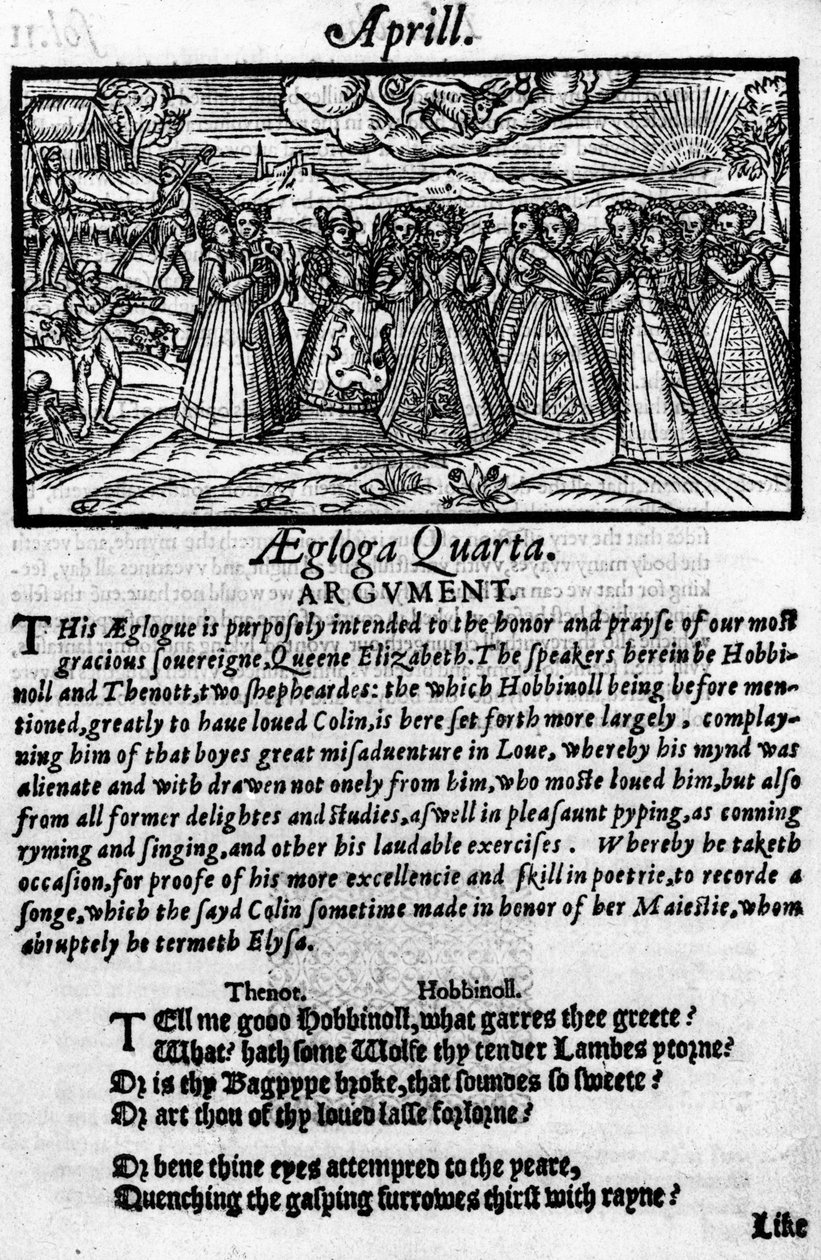 Aprill.
Ægloga Quarta.
ARGVMENT.
THis Æglogue is purposely intended to the honor and prayse of our most
gracious souereigne, Queene Elizabeth. The speakers herein be Hobbi-
noll and Thenott, two shepheardes: the which Hobbinoll being before men-
tioned, greatly to haue loued Colin, is here set forth more largely, complay-
ning him of that boyes great misaduenture in Loue, whereby his mynd was
alienate and with drawen not onely from him, who moste loued him, but also
from all former delightes and studies, aswell in pleasaunt pyping, as conning
ryming and singing, and other his laudable exercises. Whereby he taketh
occasion, for proofe of his more excellencie and skill in poetrie, to recorde a
songe, which the sayd Colin sometime made in honor of her Maiestie, whom
abruptely he termeth Elysa.
Thenot. Hobbinoll.
TEll me good Hobbinoll, what garres thee greete?
What? hath some Wolfe thy tender Lambes ytorne?
Or is thy Bagpype broke, that soundes so sweete?
Or art thou of thy loued lasse forlorne?
Or bene thine eyes attempred to the yeare,
Quenching the gasping furrowes thirst with rayne?
Like